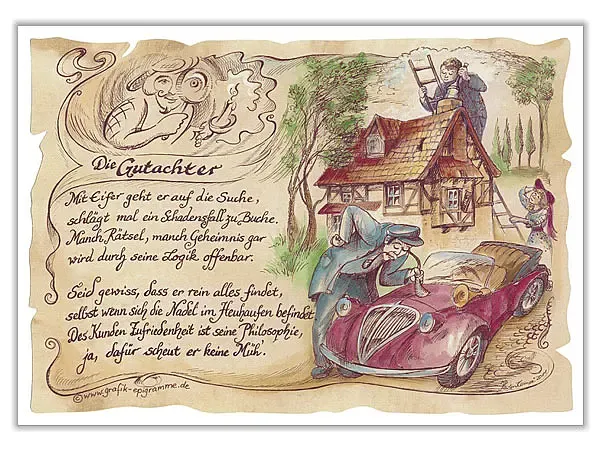 Die Gutachter
Mit Eifer geht er auf die Suche,
schlägt mal ein Schadensfall zu Buche.
Manch Rätsel, manch Geheimnis gar
wird durch seine Logik offenbar.
Seid gewiss, dass er rein alles findet,
selbst wenn sich die Nadel im Heuhaufen befindet.
Des Kunden Zufriedenheit ist seine Philosophie,
ja, dafür scheut er keine Müh'.
©www.grafik-epigramme.de